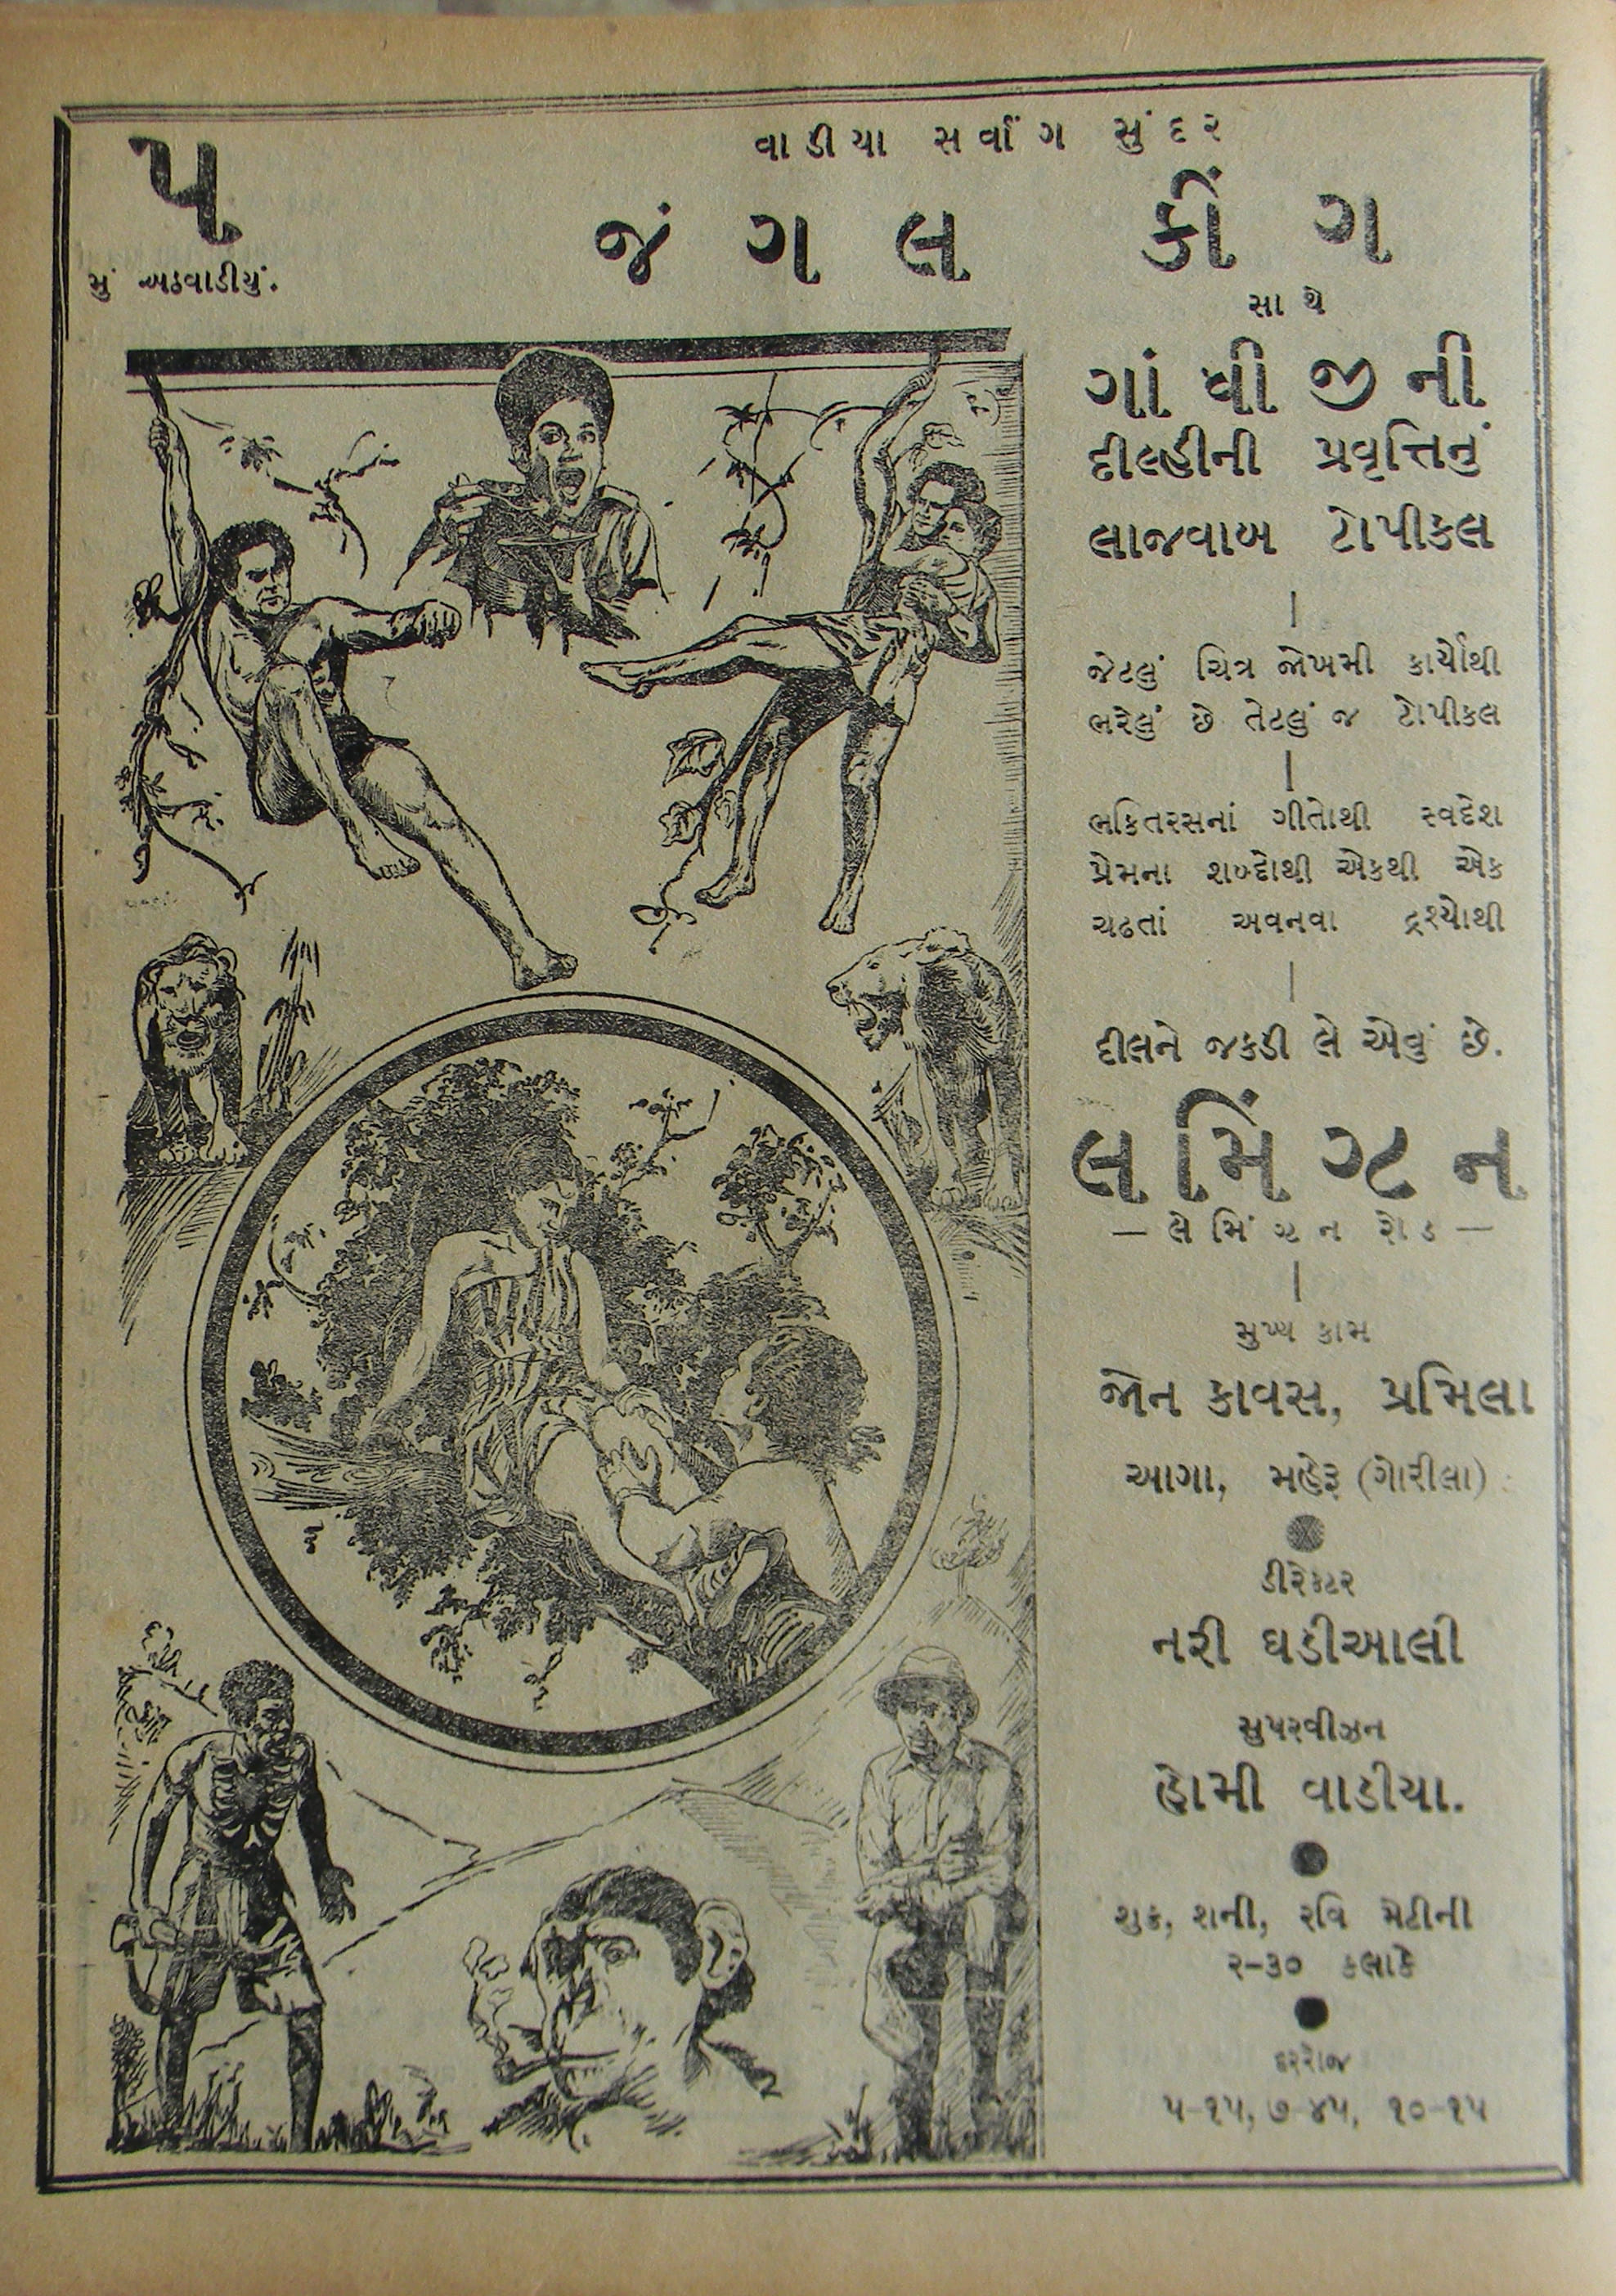 વાડીયા સર્વાંગ સુંદર
૫
મું અઠવાડીયું.
જંગલ કીંગ
સાથે
ગાંધીજીની
દીલ્હીની પ્રવૃત્તિનું
લાજવાબ ટોપીકલ
જેટલું ચિત્ર જોખમી કાર્યોથી
ભરેલું છે તેટલું જ ટોપીકલ
ભક્તિરસનાં ગીતોથી સ્વદેશ
પ્રેમના શબ્દોથી એકથી એક
ચઢતાં અવનવા દ્રશ્યોથી
દીલને જકડી લે એવું છે.
લમિંગ્ટન
— લેમિંગ્ટન રોડ —
મુખ્ય કામ
જોન કાવસ, પ્રમિલા
આગા, મહેરૂ (ગોરીલા)
ડીરેક્ટર
નરી ઘડીઆલી
સુપરવીઝન
હોમી વાડીયા.
શુક્ર, શની, રવિ મેટીની
૨-૩૦ કલાકે
દરરોજ
૫-૧૫, ૭-૪૫, ૧૦-૧૫